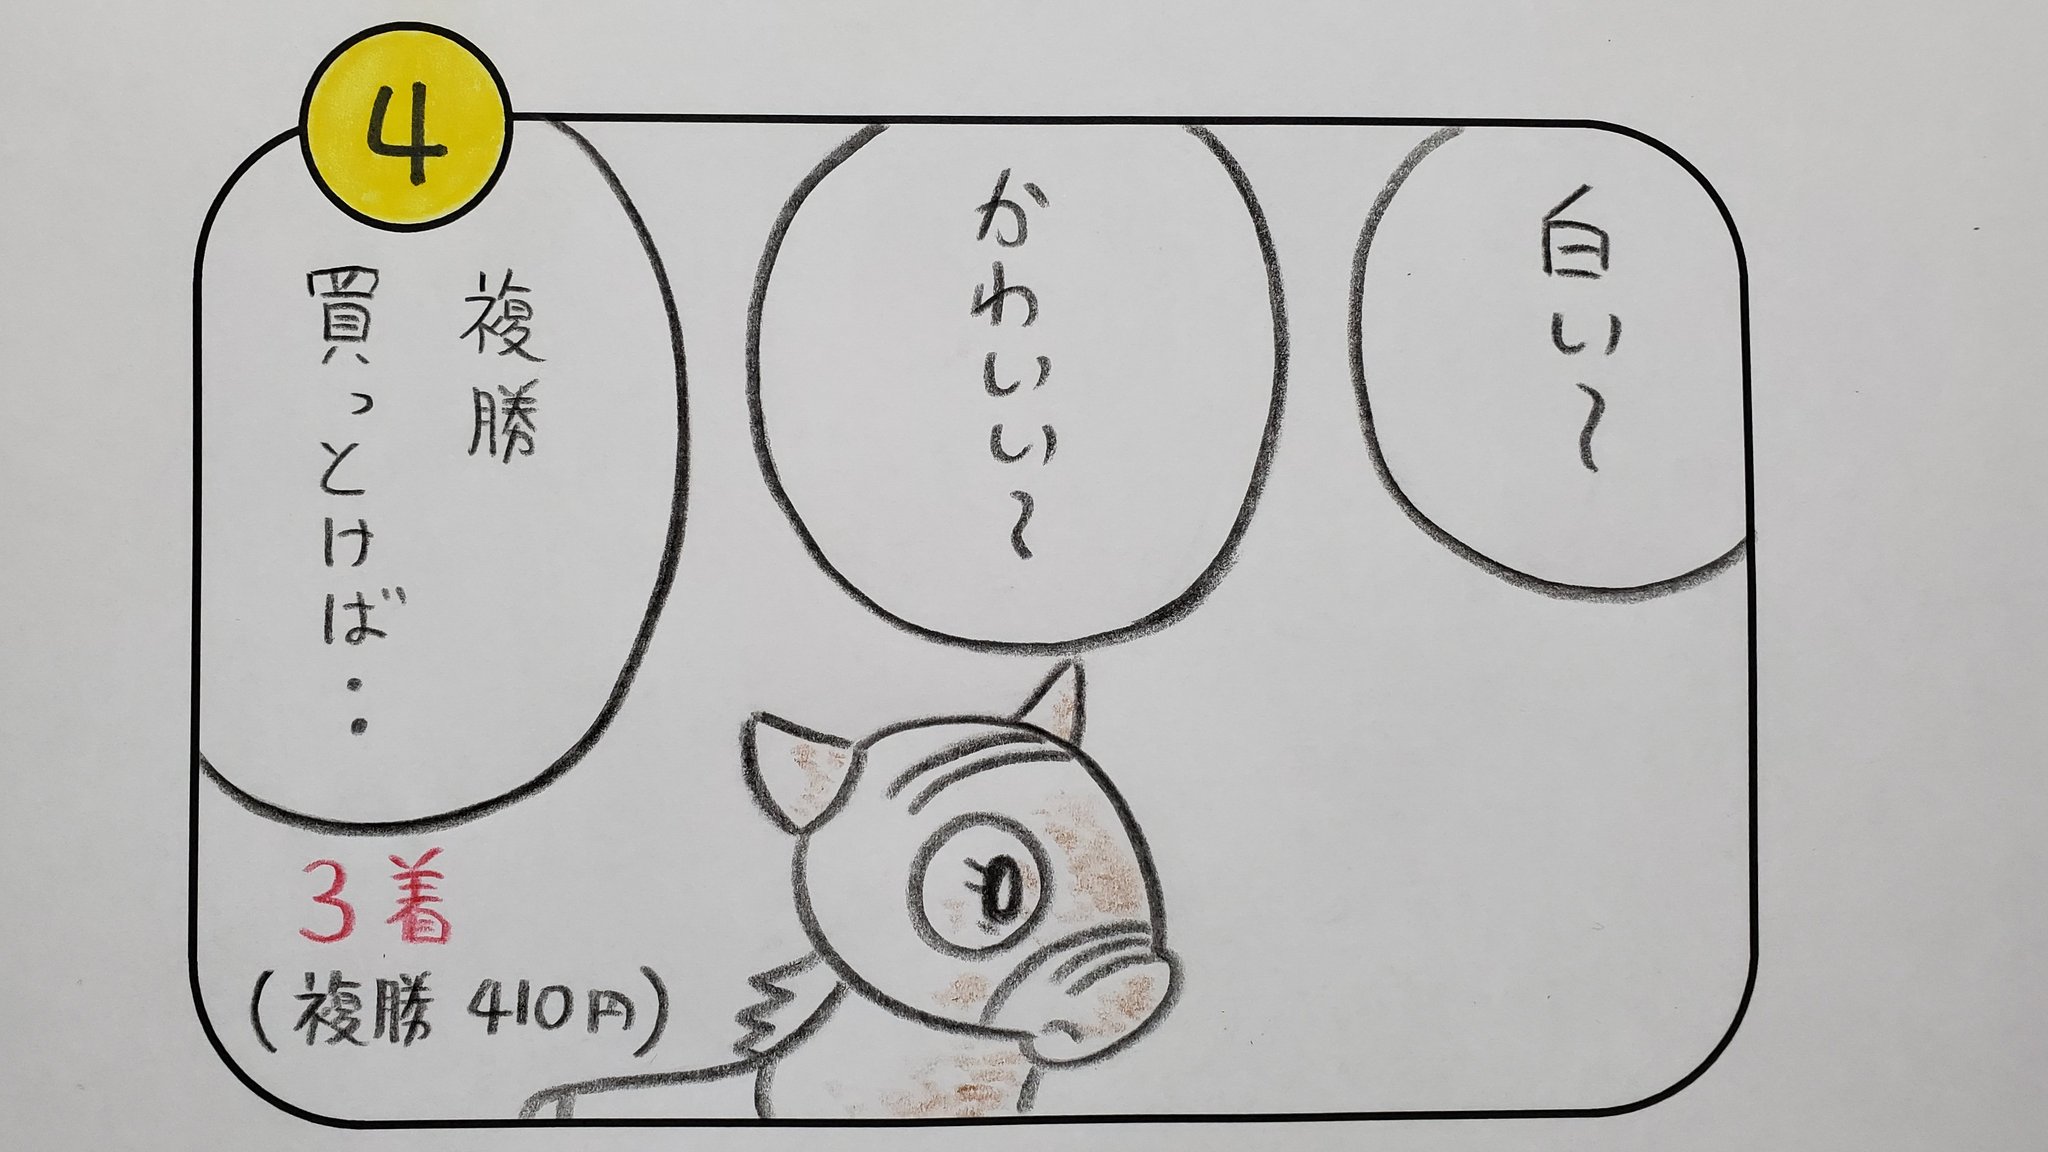 4
白い〜
かわいい〜
複勝
買っとけば・・
3着
(複勝 410円)